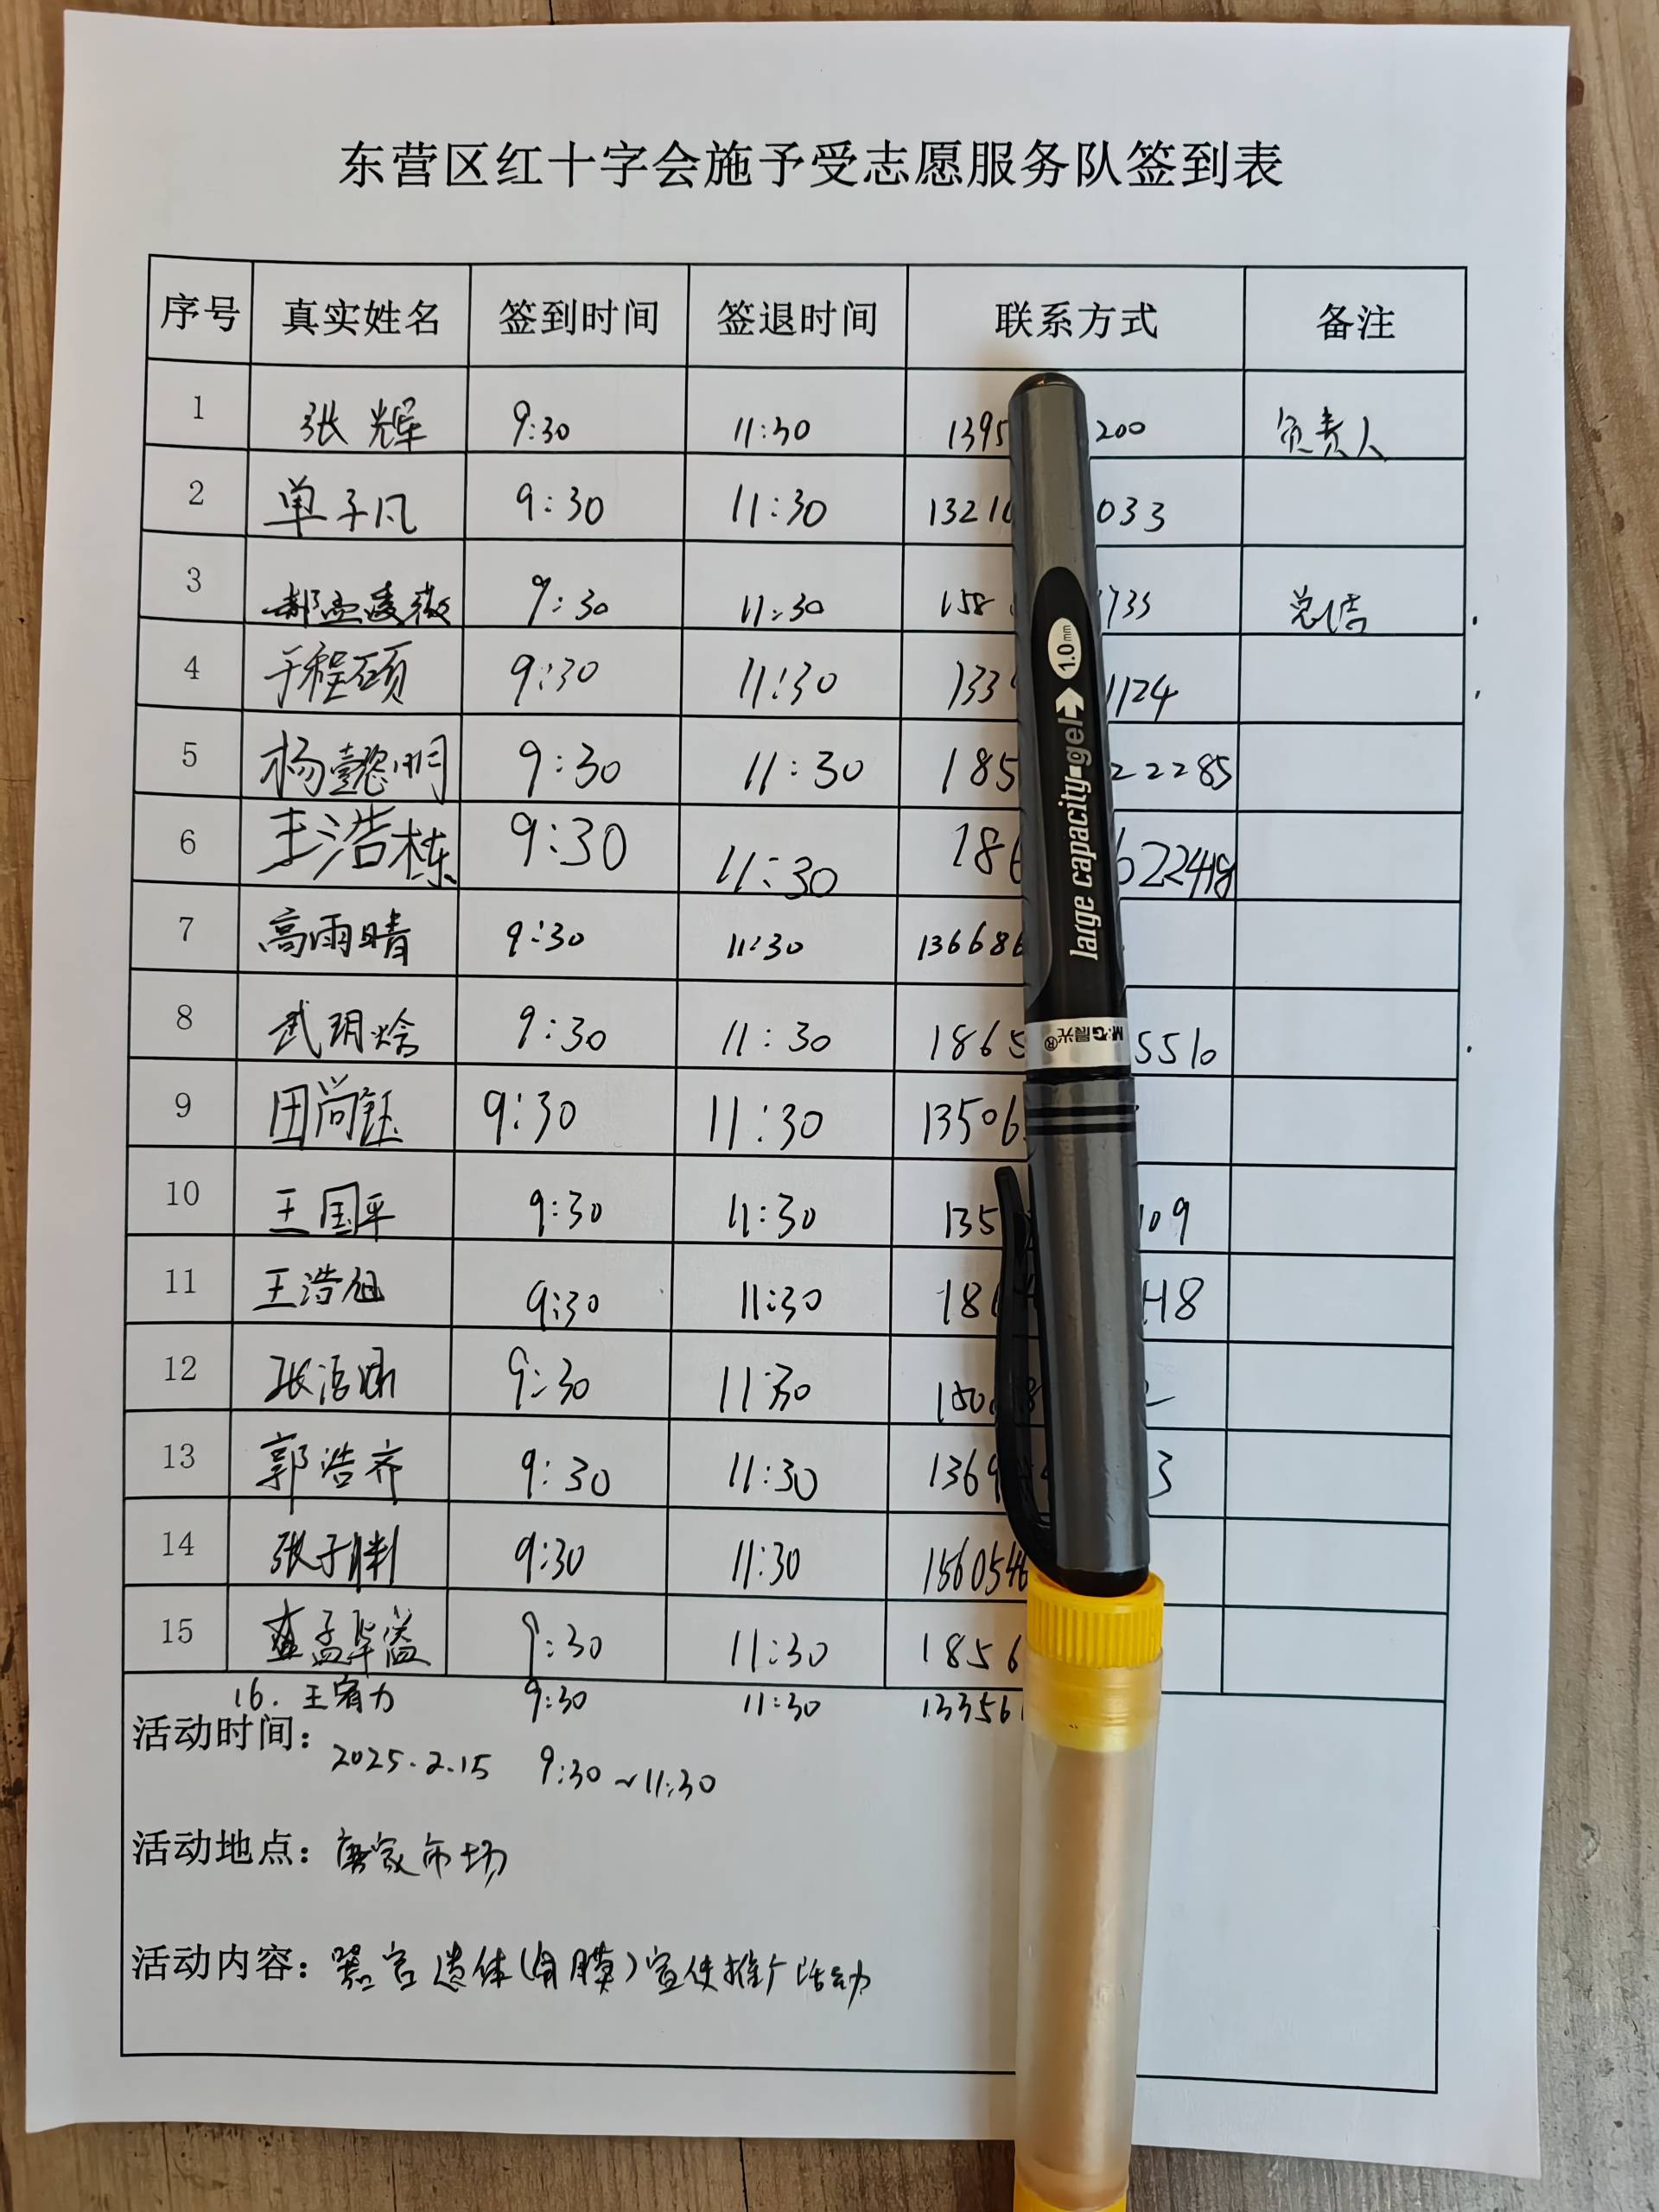 东营区红十字会施予受志愿服务队签到表
序号 真实姓名 签到时间 签退时间 联系方式 备注
1 张辉 9:30 11:30 1395 200 负责人
2 单子凡 9:30 11:30 1321 033
3 9:30 11:30 158 733 总结
4 于程硕 9:30 11:30 133 1124
5 杨懿明 9:30 11:30 185 22285
6 王浩栋 9:30 11:30 186 622418
7 高雨晴 9:30 11:30 136686
8 武玥焓 9:30 11:30 1865 5510
9 田尚钰 9:30 11:30 13506
10 王国平 9:30 11:30 135 109
11 王浩旭 9:30 11:30 18 H8
12 张洁 9:30 11:30 150 2
13 郭浩齐 9:30 11:30 136 3
14 张子胖 9:30 11:30 1560546
15 孟 9:30 11:30 1856
16. 王宥力 9:30 11:30 133561
活动时间: 2025.2.15 9:30~11:30
活动地点: 唐家市场
活动内容: 器官遗体(角膜)宣传推广活动
large capacity gel 1.0mm
M&G晨光®